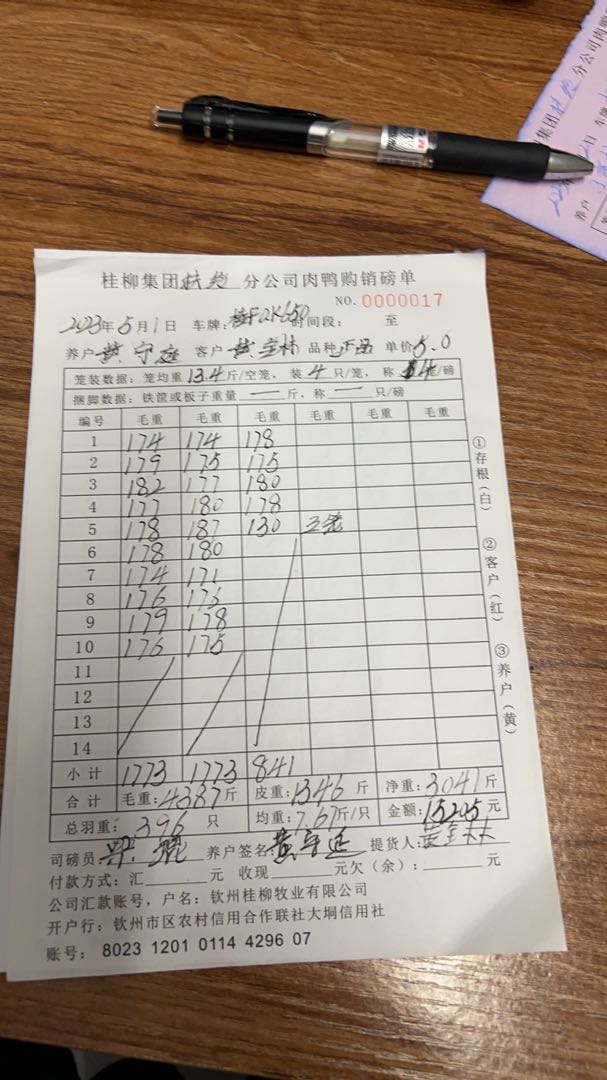 桂柳集团 分公司肉鸭购销磅单
NO. 0000017
2023年5月1日 车牌: 时间段: 至
养户 黄守延 客户 黄金林 品种 正品 单价 5.0
笼装数据: 笼均重 13.4 斤/空笼, 装 4 只/笼, 称 4笼/磅
捆脚数据: 铁筐或板子重量 — 斤, 称 — 只/磅
编号 毛重 毛重 毛重 毛重 毛重 毛重
1 174 174 178
2 179 175 175
3 182 177 180
4 177 180 178
5 178 187 130 三笼
6 178 180
7 174 171
8 176 176
9 179 178
10 176 175
11
12
13
14
小计 1773 1773 841
合计 毛重: 4387 斤 皮重: 1346 斤 净重: 3041 斤
总羽重: 396 只 均重: 7.67 斤/只 金额: 15205 元
司磅员: 养户签名: 黄守延 提货人: 黄金林
付款方式: 汇 元 收现 元欠(余): 元
公司汇款账号, 户名: 钦州桂柳牧业有限公司
开户行: 钦州市区农村信用合作联社大垌信用社
账号: 8023 1201 0114 4296 07
①存根(白)
②客户(红)
③养户(黄)
集团 分公司肉鸭
日 车牌
养户